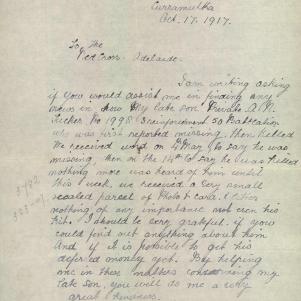 Curramulka
Oct. 17. 1917.
To The
Red Cross. Adelaide.
I am writing asking
if you would assist me in finding any
news in how My late son Private A.
No 1998 3 reinforcement 50 Battalion
who was first reported missing, then killed
We received word on 4 May to say he was
missing, then on the 14th to say he was killed
nothing more was heard of him until
this week, we received a very small
sealed parcel of Photo &
nothing of any importance not even his
Kit. I should be very grateful, if you
could find out anything about him
And if it is possible to get his
deferred money yet. By helping
me in these matters concerning my
late son, you will do me a very
great kindness.